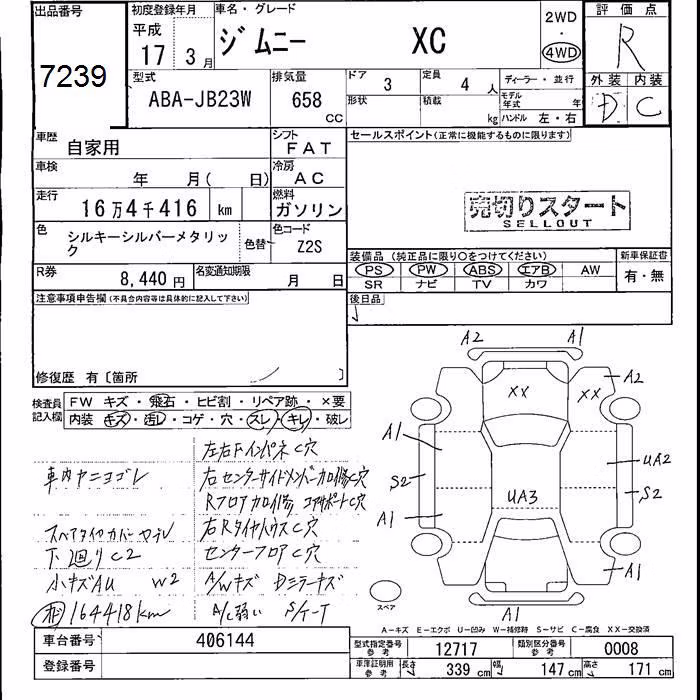 出品番号
7239
初度登録年月
平成
17 3月
車名・グレード
ジムニー XC
2WD
・
4WD
評価点
R
型式
ABA-JB23W
排気量
658 CC
ドア 3
定員 4 人
形状
積載 kg
ディーラー・並行
モデル年式 年
ハンドル 左・右
外装 内装
D C
車歴 自家用
シフト FAT
車検 年 月( 日)
冷房 AC
走行 16万4千416 km
燃料 ガソリン
色 シルキーシルバーメタリック
色替
色コード Z2S
R券 8,440円
名変通知期限 月 日
セールスポイント(正常に機能するものに限ります)
売切りスタート
SELLOUT
装備品 (純正品に限り○をつけてください)
新車保証書
PS PW ABS エアB AW
SR ナビ TV カワ
有・無
後日品
注意事項申告欄(不具合内容等は具体的に記入して下さい)
修復歴 有〔箇所 〕
検査員記入欄
FW キズ・飛石・ヒビ割・リペア跡・×要
内装 キズ・汚レ・コゲ・穴・スレ・キレ・破レ
左右FインパネC穴
車内ヤニヨゴレ
右センターサイドメンバー加修C穴
Rフロア加修 コアサポートC穴
スペアタイヤカバーヤブレ
右RタイヤハウスC穴
下廻りC2
センターフロアC穴
小キズAU W2
A/Wキズ Dミラーキズ
164418km
A/C弱い S/ケース
A2 A1
XX XX A2
A1
S2
UA2
S2
UA3
A1
A1
スペア
A1
A-キズ E-エクボ U-凹み W-補修跡 S-サビ C-腐食 XX-交換済
車台番号 406144
登録番号
型式指定番号 参考 12717
類別区分番号 参考 0008
車庫証明用 参考 長さ 339 cm 幅 147 cm 高さ 171 cm